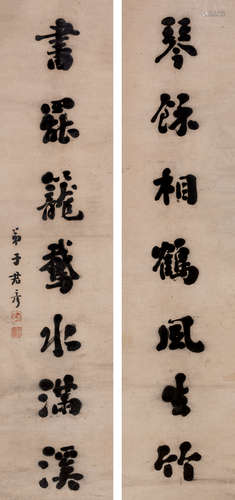 琴餘相鶴風生竹
書罷籠鵝水滿溪
弟子君彥